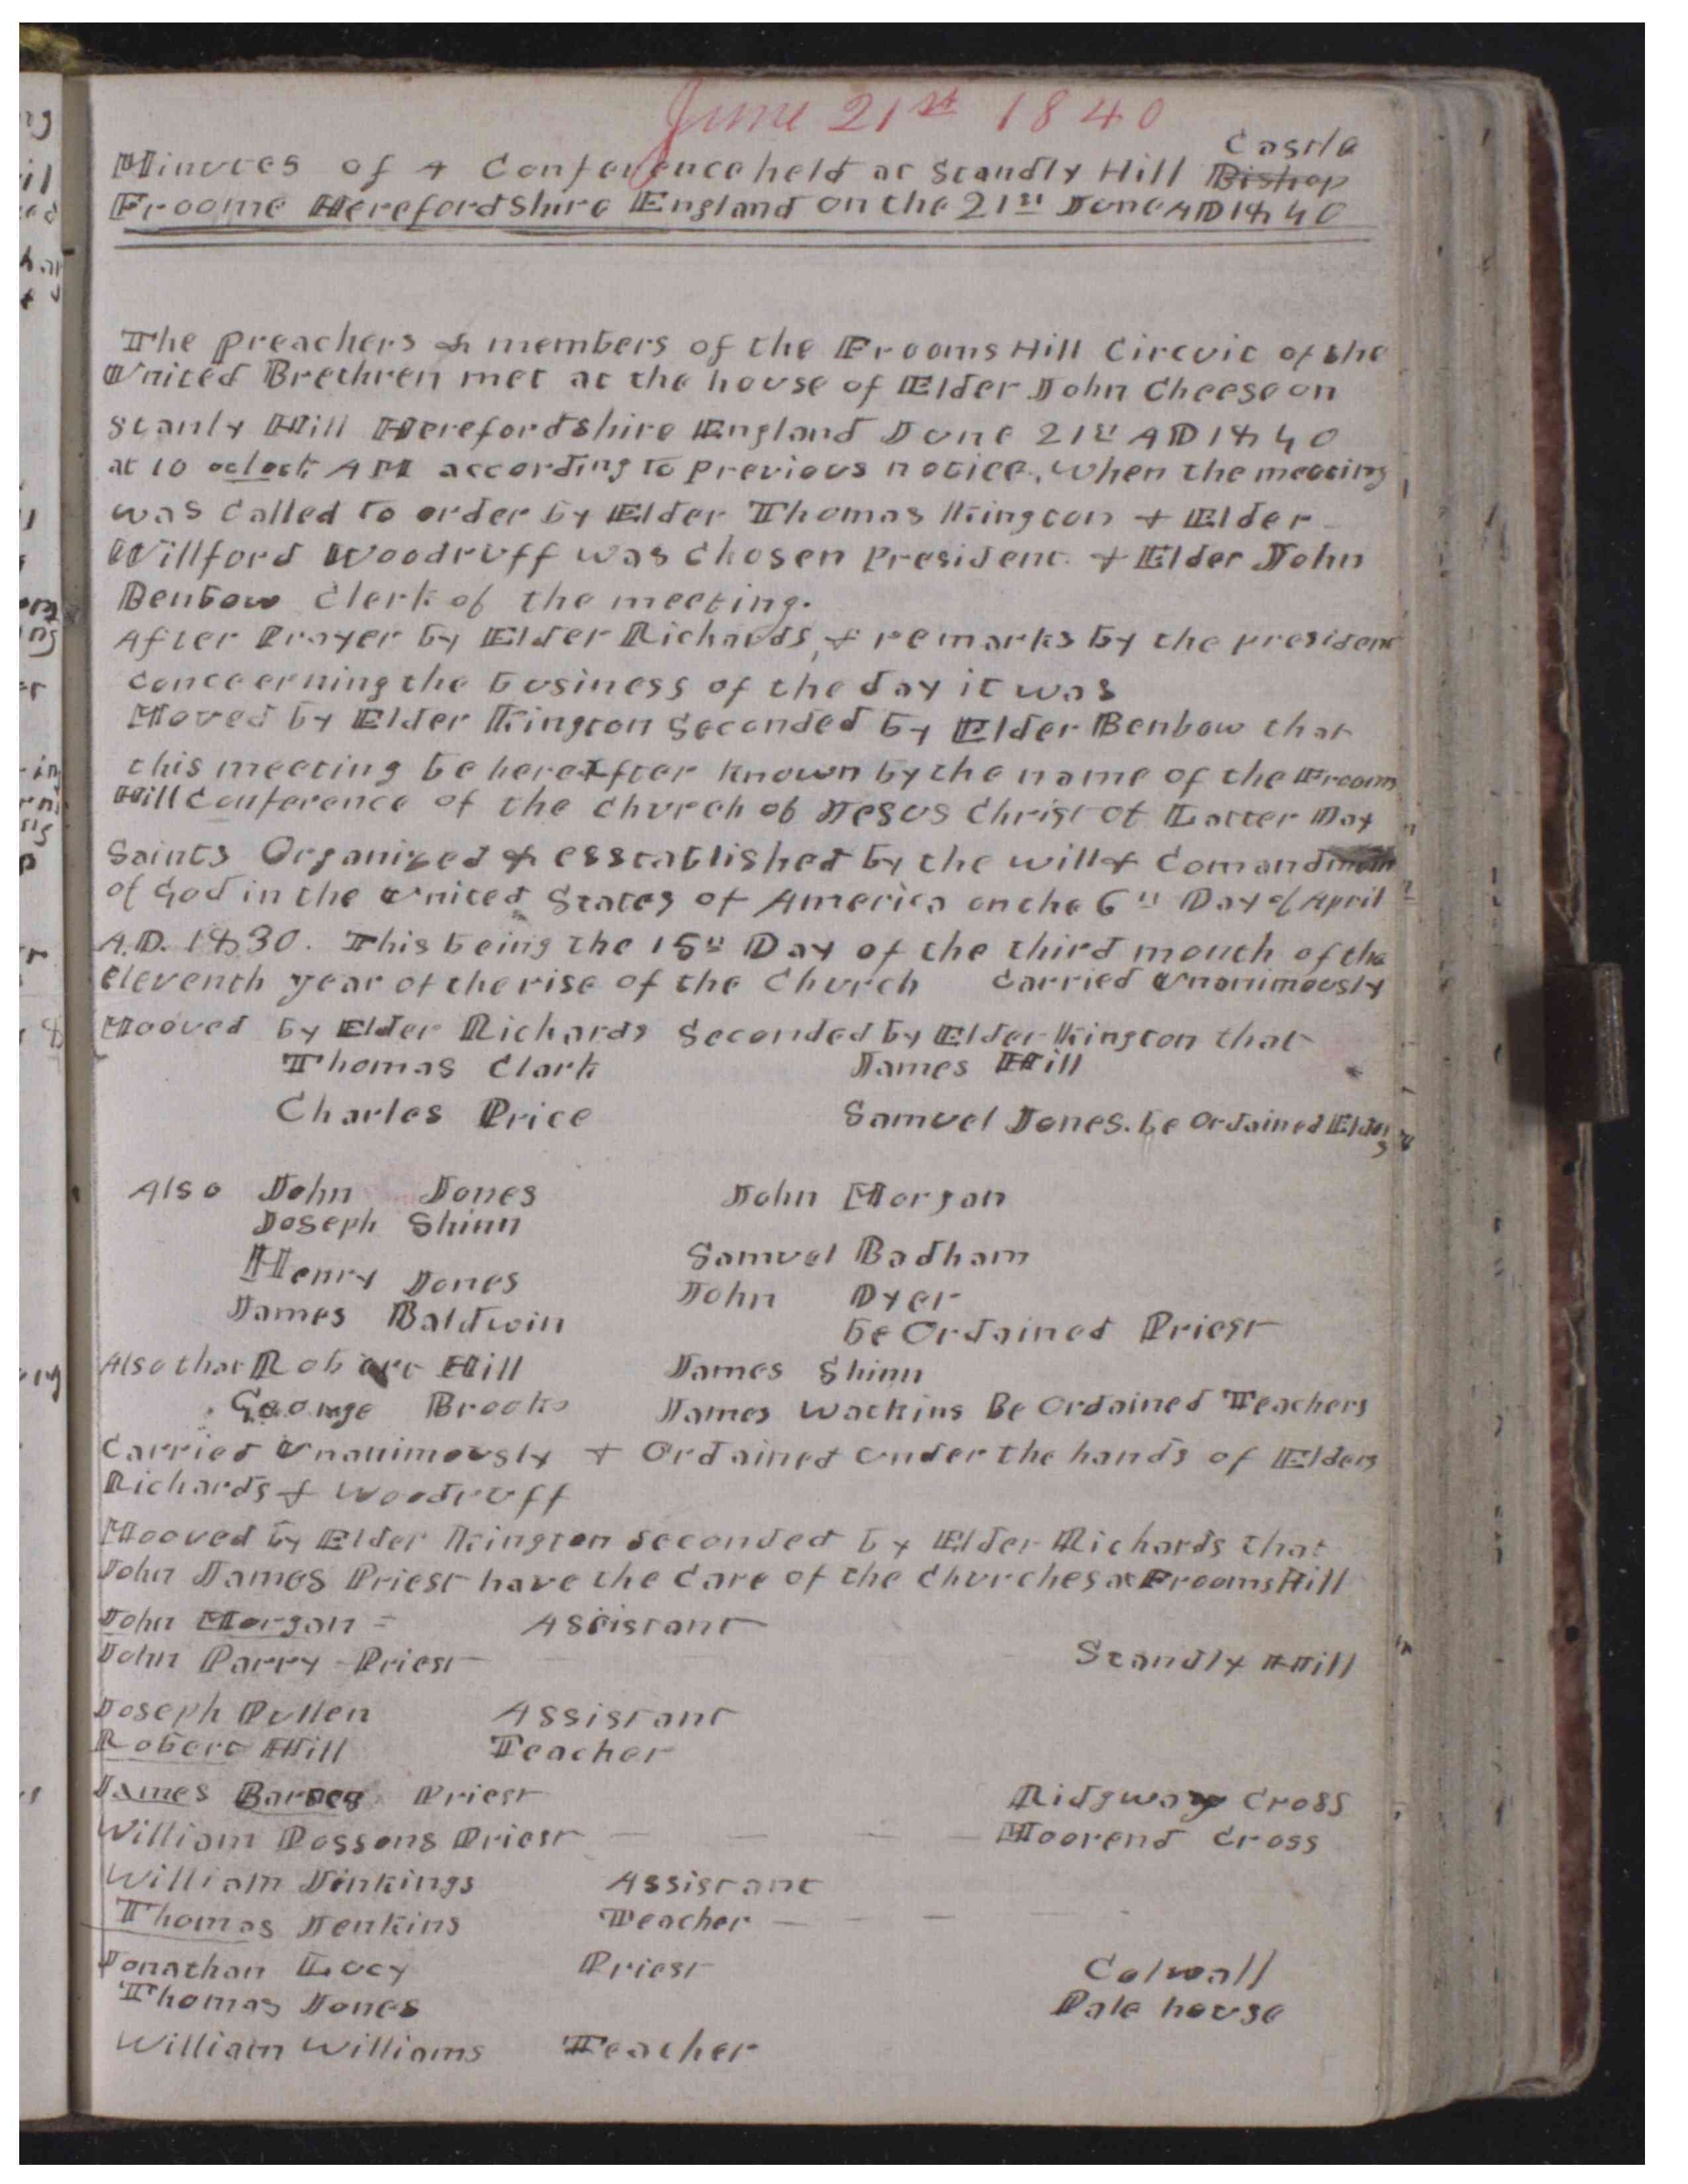 June 21st 1840
Castle
Minutes of A Conference held at Standly Hill Bishop
Froome Herefordshire England on the 21st June AD 1840
The preachers & members of the Frooms Hill Circuit of the
United Brethren met at the house of Elder John Cheese on
Stanly Hill Herefordshire England June 21st AD 1840
at 10 oclock AM according to previous notice, When the meeting
was Called to order by Elder Thomas Kington & Elder
Willford Woodruff was Chosen President. & Elder John
Benbow Clerk of the meeting.
After Prayer by Elder Richards, & remarks by the president
conceerning the business of the day it was
Moved by Elder Kington Seconded by Elder Benbow that
this meeting be hereafter Known by the name of the Frooms
Hill Conference of the Church of Jesus Christ of Latter Day
Saints Organized & esstablished by the will & Comandment
of God in the United States of America on the 6th Day of April
A.D. 1830. This being the 15th Day of the third month of the
Eleventh year of the rise of the Church Carried Unanimously
Mooved by Elder Richards Seconded by Elder Kington that
Thomas Clark James Hill
Charles Price Samuel Jones. be Ordained Elders
Also John Jones John Morgan
Joseph Shinn
Samuel Badham
Henry Jones
John Dyer
James Baldwin
be Ordained Priest
Also that Robert Hill James Shinn
George Brooks James Watkins Be Ordained Teachers
Carried Unanimously & Ordained under the hands of Elders
Richards & Woodruff
Mooved by Elder Kington Seconded by Elder Richards that
John James Priest have the Care of the Churches at Frooms Hill
John Morgan = Assistant
John Parry - Priest Standly Hill
Joseph Pullen Assistant
Robert Hill Teacher
James Barnes Priest Ridgway Cross
William Possons Priest — — — — Moorend Cross
William Jinkings Assistant
Thomas Jenkins Teacher — — — —
Jonathan Lucy Priest Colwall
Thomas Jones Pale house
William Williams Teacher